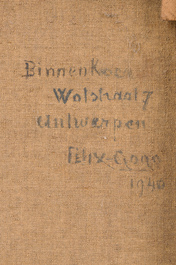 Binnenkoer
Wolstraat 7
Antwerpen
Felix Gogo
1940